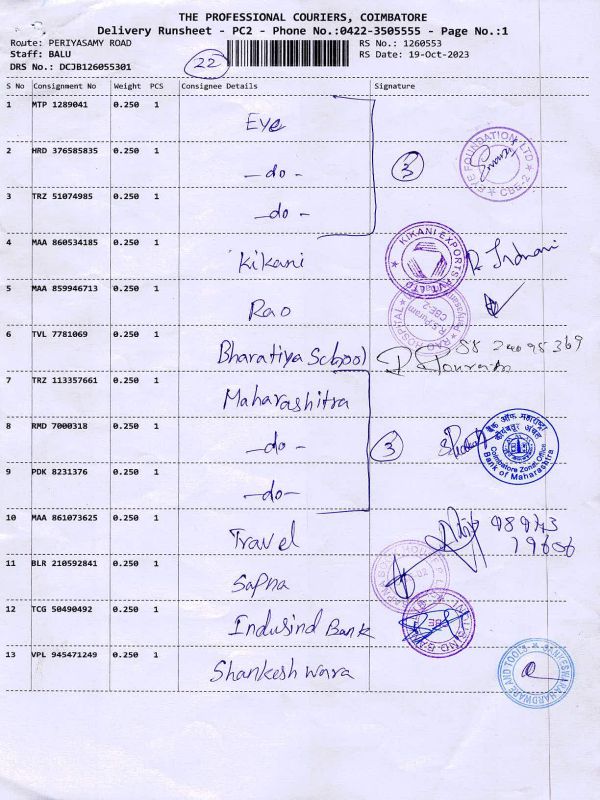 THE PROFESSIONAL COURIERS, COIMBATORE
Delivery Runsheet - PC2 - Phone No.:0422-3505555 - Page No.:1
Route: PERIYASAMY ROAD RS No.: 1260553
Staff: BALU 22 RS Date: 19-Oct-2023
DRS No.: DCJB126055301
S No Consignment No Weight PCS Consignee Details Signature
1 MTP 1289041 0.250 1 Eye
2 HRD 376585835 0.250 1 -do- 3 EYE FOUNDATION LTD CBE-2
3 TRZ 51074985 0.250 1 -do-
4 MAA 860534185 0.250 1 Kikani KIKANI EXPORTS PVT LTD
5 MAA 859946713 0.250 1 Rao RAO HOSPITAL R.S.Puram CBE-2
6 TVL 7781069 0.250 1 Bharatiya School
7 TRZ 113357661 0.250 1 Maharashitra
8 RMD 7000318 0.250 1 -do- 3 बैंक ऑफ महाराष्ट्र Coimbatore Zonal Office Bank of Maharashtra
9 PDK 8231376 0.250 1 -do-
10 MAA 861073625 0.250 1 Travel
11 BLR 210592841 0.250 1 Sapna
12 TCG 50490492 0.250 1 Indusind Bank CBE
13 VPL 945471249 0.250 1 Shankeshwara